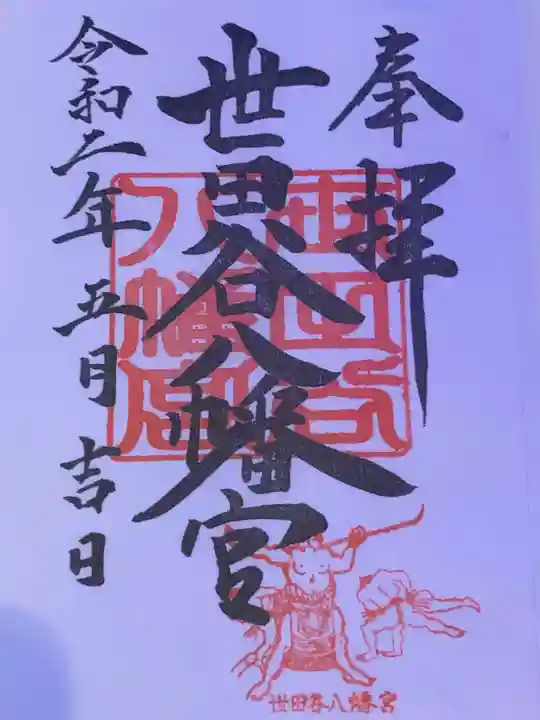 奉拝
世田谷八幡宮
世田谷
八幡宮
令和二年五月吉日
世田谷八幡宮